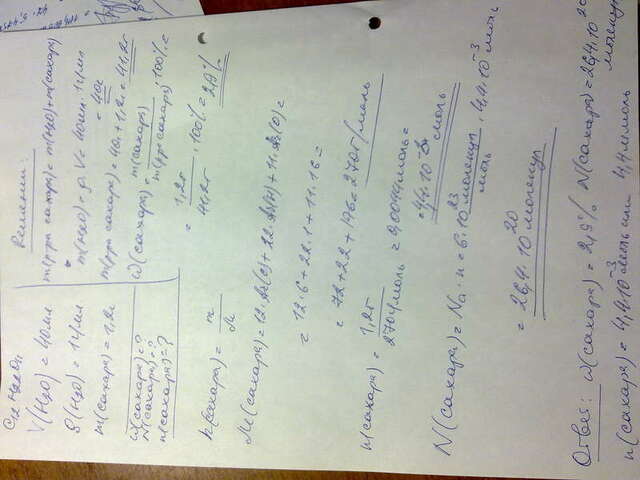 C12H22O11
V(H2O) = 40мл
ρ(H2O) = 1г/мл
m(сахара) = 1,2г
ω(сахара) = ?
N(сахара) = ?
n(сахара) = ?
Решение:
m(р-ра сахара) = m(H2O) + m(сахара)
m(H2O) = ρ·V = 40мл · 1г/мл
= 40г
m(р-ра сахара) = 40г + 1,2г = 41,2г
ω(сахара) = m(сахара) / m(р-ра сахара) · 100% =
= 1,2г / 41,2г · 100% = 2,9%
n(сахара) = m / M
M(сахара) = 12·Ar(C) + 22·Ar(H) + 11·Ar(O) =
= 12·6 + 22·1 + 11·16 =
= 72 + 22 + 176 = 270г/моль
n(сахара) = 1,2г / 270г/моль = 0,0044моль =
= 4,4·10⁻³ моль
N(сахара) = Na·n = 6·10²³ молекул/моль · 4,4·10⁻³ моль
= 26,4·10²⁰ молекул
Ответ: ω(сахара) = 2,9% N(сахара) = 26,4·10²⁰ молекул
n(сахара) = 4,4·10⁻³ моль или 4,4 ммоль